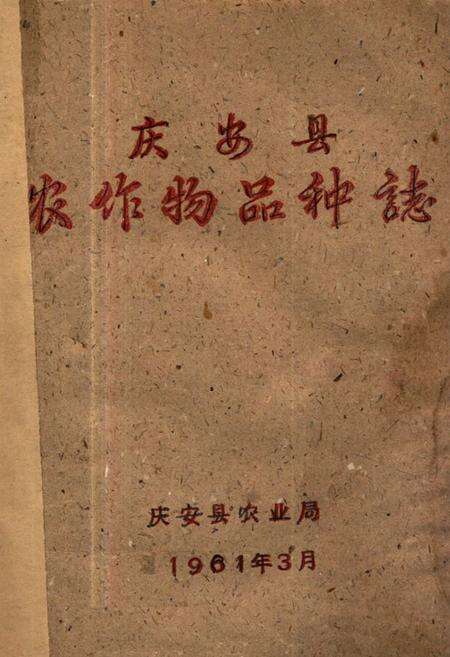 庆安县
农作物品种誌
庆安县农业局
1961年3月